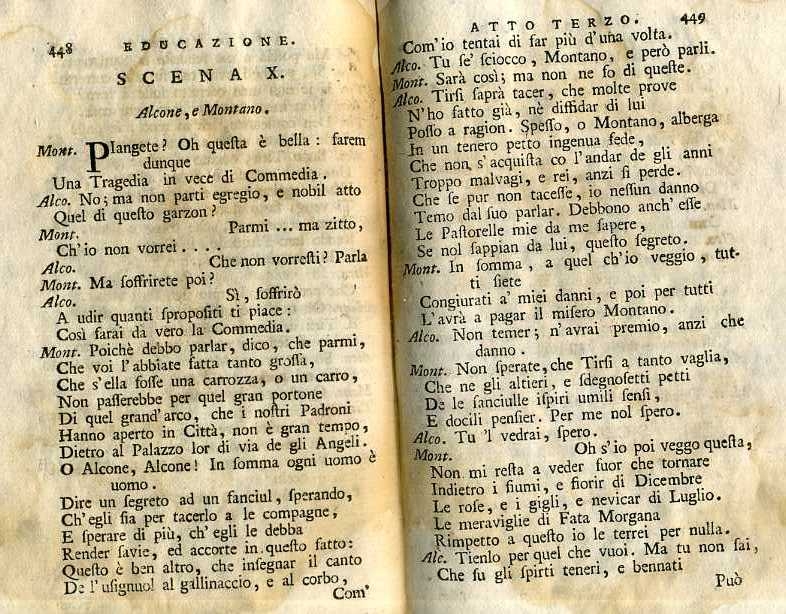 448 EDUCAZIONE.
SCENA X.
Alcone, e Montano.
Mont. PIangete? Oh queſta è bella: farem
dunque
Una Tragedia in vece di Commedia.
Alco. No; ma non parti egregio, e nobil atto
Quel di queſto garzon?
Mont. Parmi ... ma zitto,
Ch'io non vorrei....
Alco. Che non vorreſti? Parla
Mont. Ma ſoffrirete poi?
Alco. Sì, ſoffrirò
A udir quanti ſpropoſiti ti piace:
Così farai da vero la Commedia.
Mont. Poichè debbo parlar, dico, che parmi,
Che voi l'abbiate fatta tanto groſſa,
Che s'ella foſſe una carrozza, o un carro,
Non paſſerebbe per quel gran portone
Di quel grand'arco, che i noſtri Padroni
Hanno aperto in Città, non è gran tempo,
Dietro al Palazzo lor di via de gli Angeli.
O Alcone, Alcone! In ſomma ogni uomo è
uomo.
Dire un ſegreto ad un fanciul, ſperando,
Ch'egli ſia per tacerlo a le compagne,
E ſperare di più, ch'egli le debba
Render ſavie, ed accorte in queſto fatto:
Queſto è ben altro, che inſegnar il canto
De l'uſignuol al gallinaccio, e al corbo,
Com'
ATTO TERZO. 449
Com'io tentai di far più d'una volta.
Alco. Tu ſe' ſciocco, Montano, e però parli.
Mont. Sarà così; ma non ne fo di queſte.
Alco. Tirſi ſaprà tacer, che molte prove
N'ho fatto già, nè diffidar di lui
Poſſo a ragion. Speſſo, o Montano, alberga
In un tenero petto ingenua fede,
Che non s'acquiſta co l'andar de gli anni
Troppo malvagi, e rei, anzi ſi perde.
Che ſe pur non taceſſe, io neſſun danno
Temo dal ſuo parlar. Debbono anch'eſſe
Le Paſtorelle mie da me ſapere,
Se nol ſappian da lui, queſto ſegreto.
Mont. In ſomma, a quel ch'io veggio, tut-
ti ſiete
Congiurati a' miei danni, e poi per tutti
L'avrà a pagar il miſero Montano.
Alco. Non temer; n'avrai premio, anzi che
danno.
Mont. Non ſperate, che Tirſi a tanto vaglia,
Che ne gli altieri, e ſdegnoſetti petti
De le fanciulle iſpiri umili ſenſi,
E docili penſier. Per me nol ſpero.
Alco. Tu 'l vedrai, ſpero.
Mont. Oh s'io poi veggo queſta,
Non mi reſta a veder fuor che tornare
Indietro i fiumi, e fiorir di Dicembre
Le roſe, e i gigli, e nevicar di Luglio.
Le meraviglie di Fata Morgana
Rimpetto a queſto io le terrei per nulla.
Alc. Tienlo per quel che vuoi. Ma tu non ſai,
Che ſu gli ſpirti teneri, e bennati
Può